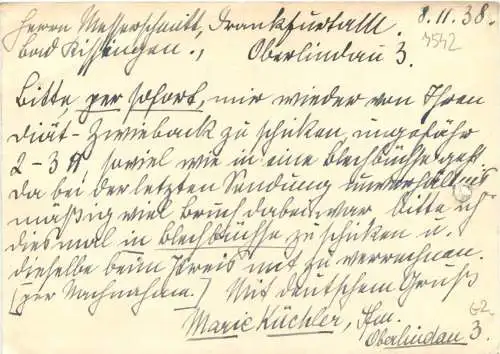 Herrn Messerschmitt, Frankfurt a/M. 8.11.38.
Bad Kissingen., Oberlindau 3.
4542
Bitte, per sofort, mir wieder von Ihren
Diät-Zwieback zu schicken, ungefähr
2-3 ℔, soviel wie in eine Blechbüchse geht.
Da bei der letzten Sendung unverhältnis
mäßig viel Bruch dabei war bitte ich
diesmal in Blechbüchse zu schicken u.
dieselbe beim Preis mit zu verrechnen.
[per Nachnahme.] Mit deutschem Gruß
Marie Küchler, Ffm.
Oberlindau 3.